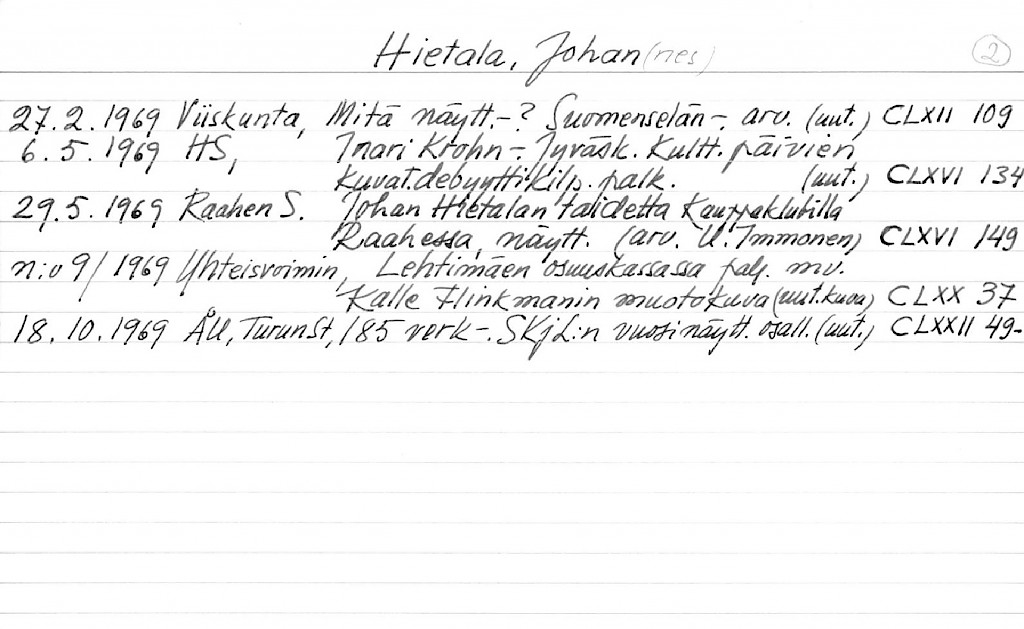 Hietala, Johan(nes) 2
27.2.1969 Viiskunta, Mitä näytt.-? Suomenselän-. arv. (uut.) CLXII 109
6.5.1969 HS, Inari Krohn-. Jyväsk. Kultt. päivien
kuvat.debyyttikilp. palk. (uut.) CLXVI 134
29.5.1969 Raahen S. Johan Hietalan taidetta Kauppaklubilla
Raahessa, näytt. (arv. U. Immonen) CLXVI 149
n:o 9/1969 Yhteisvoimin, Lehtimäen osuuskassassa palj. mv.
Kalle Flinkmanin muotokuva (uut.kuva) CLXX 37
18.10.1969 ÅU, TurunSt, 185 verk-. SKjL:n vuosinäytt. osall. (uut.) CLXXII 49-